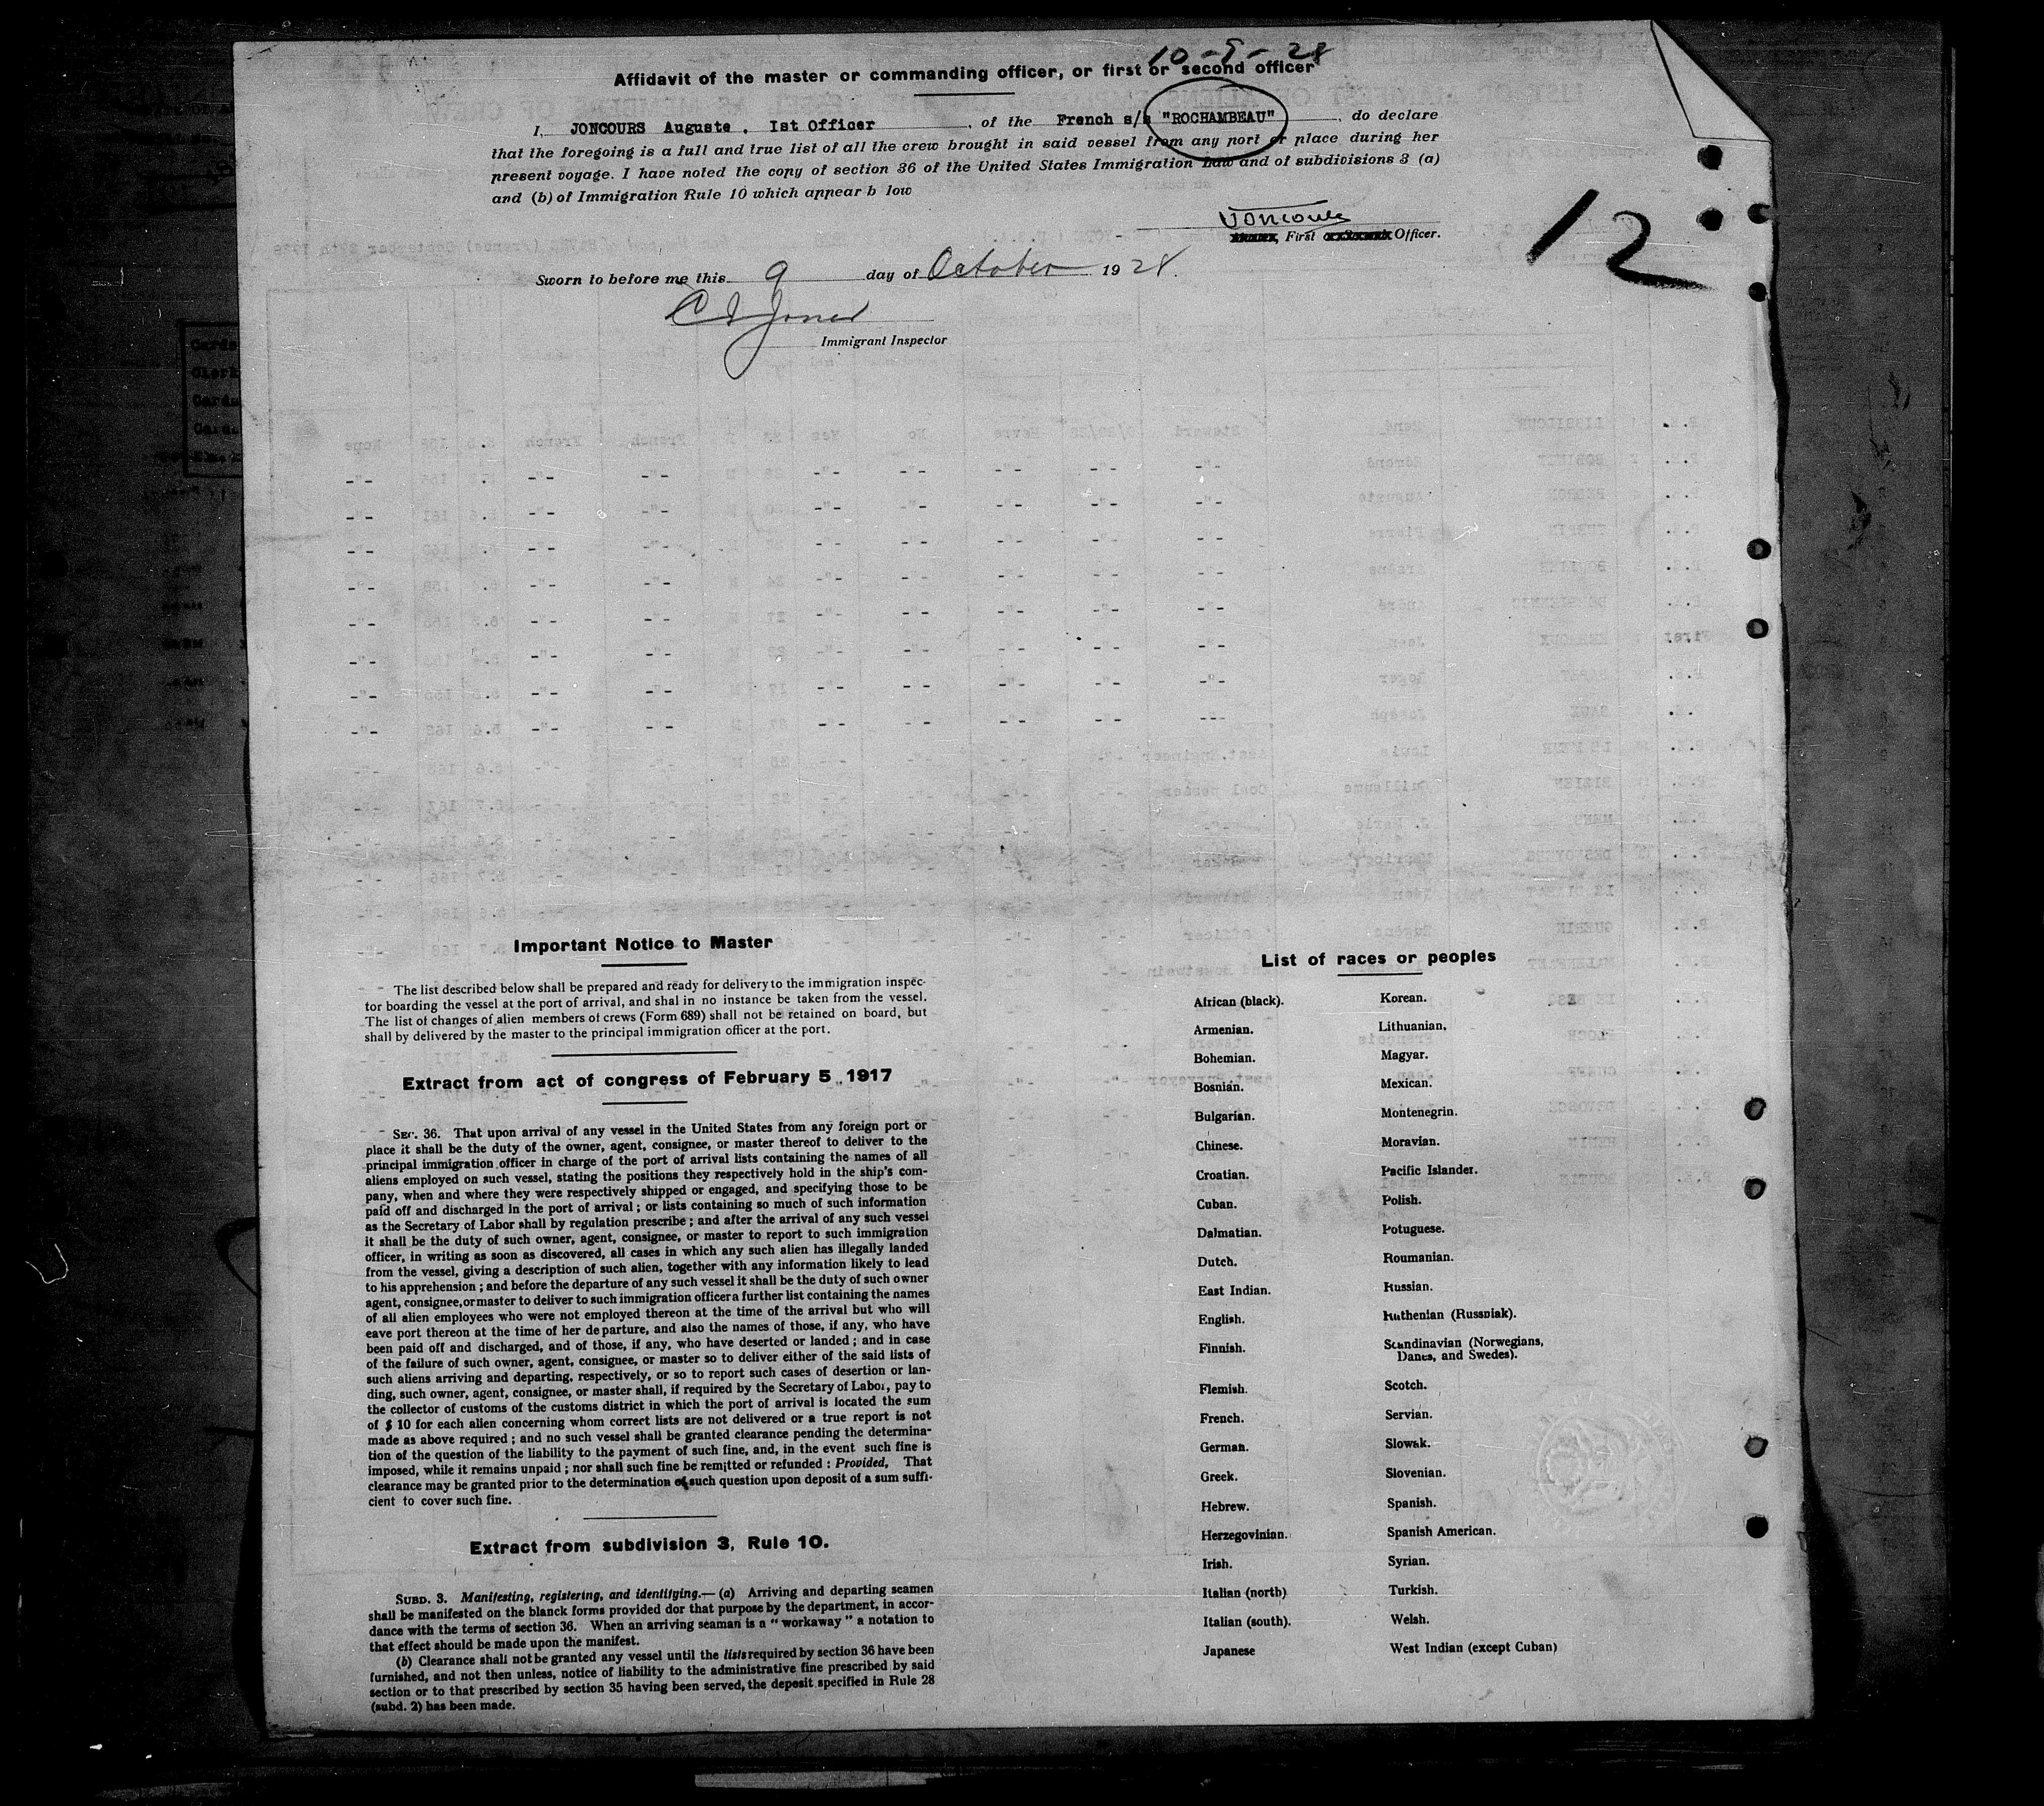 10-9-28
Affidavit of the master or commanding officer, or first or second officer
I, JONCOURS Auguste . Ist Officer , of the French s/s "ROCHAMBEAU" , do declare
that the foregoing is a full and true list of all the crew brought in said vessel from any port or place during her
present voyage. I have noted the copy of section 36 of the United States Immigration Law and of subdivisions 3 (a)
and (b) of Immigration Rule 10 which appear b low
Joncours
First Officer.
12
Sworn to before me this 9 day of October 1928.
C I Jones
Immigrant Inspector
Important Notice to Master
The list described below shall be prepared and ready for delivery to the immigration inspec-
tor boarding the vessel at the port of arrival, and shal in no instance be taken from the vessel.
The list of changes of alien members of crews (Form 689) shall not be retained on board, but
shall by delivered by the master to the principal immigration officer at the port.
Extract from act of congress of February 5 1917
SEC. 36. That upon arrival of any vessel in the United States from any foreign port or
place it shall be the duty of the owner, agent, consignee, or master thereof to deliver to the
principal immigration officer in charge of the port of arrival lists containing the names of all
aliens employed on such vessel, stating the positions they respectively hold in the ship's com-
pany, when and where they were respectively shipped or engaged, and specifying those to be
paid off and discharged in the port of arrival ; or lists containing so much of such information
as the Secretary of Labor shall by regulation prescribe ; and after the arrival of any such vessel
it shall be the duty of such owner, agent, consignee, or master to report to such immigration
officer, in writing as soon as discovered, all cases in which any such alien has illegally landed
from the vessel, giving a description of such alien, together with any information likely to lead
to his apprehension ; and before the departure of any such vessel it shall be the duty of such owner
agent, consignee, or master to deliver to such immigration officer a further list containing the names
of all alien employees who were not employed thereon at the time of the arrival but who will
eave port thereon at the time of her departure, and also the names of those, if any, who have
been paid off and discharged, and of those, if any, who have deserted or landed ; and in case
of the failure of such owner, agent, consignee, or master so to deliver either of the said lists of
such aliens arriving and departing, respectively, or so to report such cases of desertion or lan-
ding, such owner, agent, consignee, or master shall, if required by the Secretary of Labor, pay to
the collector of customs of the customs district in which the port of arrival is located the sum
of $ 10 for each alien concerning whom correct lists are not delivered or a true report is not
made as above required ; and no such vessel shall be granted clearance pending the determina-
tion of the question of the liability to the payment of such fine, and, in the event such fine is
imposed, while it remains unpaid ; nor shall such fine be remitted or refunded : Provided, That
clearance may be granted prior to the determination of such question upon deposit of a sum suffi-
cient to cover such fine.
Extract from subdivision 3, Rule 10.
SUBD. 3. Manifesting, registering, and identitying.— (a) Arriving and departing seamen
shall be manifested on the blanck forms provided dor that purpose by the department, in accor-
dance with the terms of section 36. When an arriving seaman is a " workaway " a notation to
that effect should be made upon the manifest.
(b) Clearance shall not be granted any vessel until the lists required by section 36 have been
furnished, and not then unless, notice of liability to the administrative fine prescribed by said
section or to that prescribed by section 35 having been served, the deposit specified in Rule 28
(subd. 2) has been made.
List of races or peoples
African (black).
Armenian.
Bohemian.
Bosnian.
Bulgarian.
Chinese.
Croatian.
Cuban.
Dalmatian.
Dutch.
East Indian.
English.
Finnish.
Flemish.
French.
German.
Greek.
Hebrew.
Herzegovinian.
Irish.
Italian (north)
Italian (south).
Japanese
Korean.
Lithuanian.
Magyar.
Mexican.
Montenegrin.
Moravian.
Pacific Islander.
Polish.
Potuguese.
Roumanian.
Russian.
Ruthenian (Russniak).
Scandinavian (Norwegians,
Danes, and Swedes).
Scotch.
Servian.
Slowak.
Slovenian.
Spanish.
Spanish American.
Syrian.
Turkish.
Welsh.
West Indian (except Cuban)